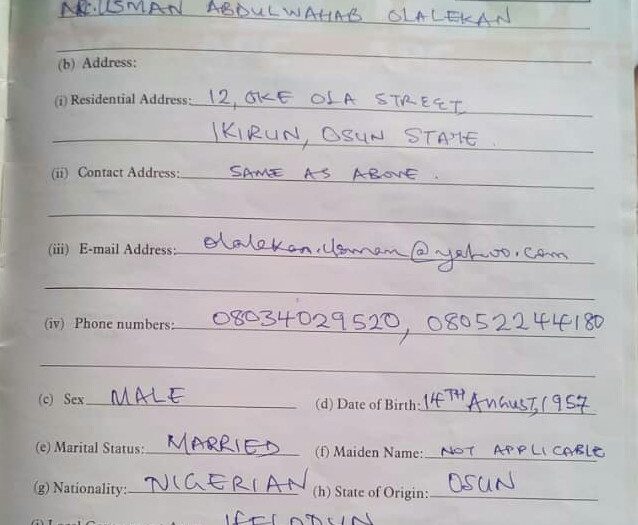 MR. USMAN ABDULWAHAB OLALEKAN
(b) Address:
(i) Residential Address: 12, OKE OLA STREET
IKIRUN, OSUN STATE.
(ii) Contact Address: SAME AS ABOVE.
(iii) E-mail Address: olalekan.usman@yahoo.com
(iv) Phone numbers: 08034029520, 08052244180
(c) Sex MALE (d) Date of Birth: 14TH AUGUST, 1957
(e) Marital Status: MARRIED (f) Maiden Name: NOT APPLICABLE
(g) Nationality: NIGERIAN (h) State of Origin: OSUN
IFELODUN